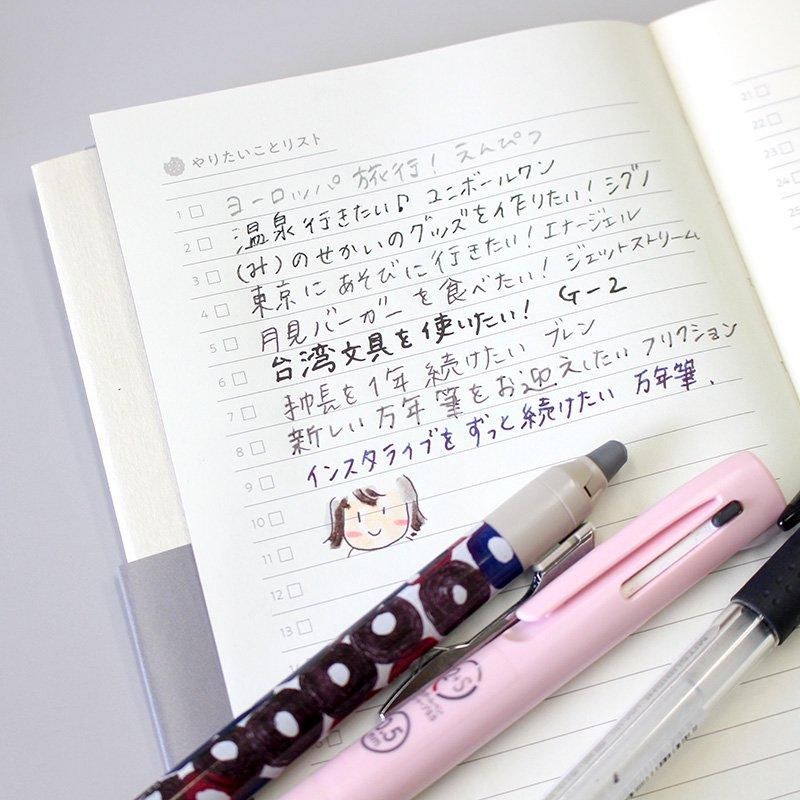 やりたいことリスト
1 ヨーロッパ 旅行! えんぴつ
2 温泉行きたい♪ ユニボールワン
3 (み)のせかいのグッズを作りたい! シグノ
4 東京にあそびに行きたい! エナージェル
5 月見バーガーを食べたい! ジェットストリーム
6 台湾文具を使いたい! G-2
7 手帳を1年 続けたい ブレン
8 新しい万年筆をお迎えしたい フリクション
9 インスタライブをずっと続けたい 万年筆、
10
11
12
13
21
22
23
24
25
0.5